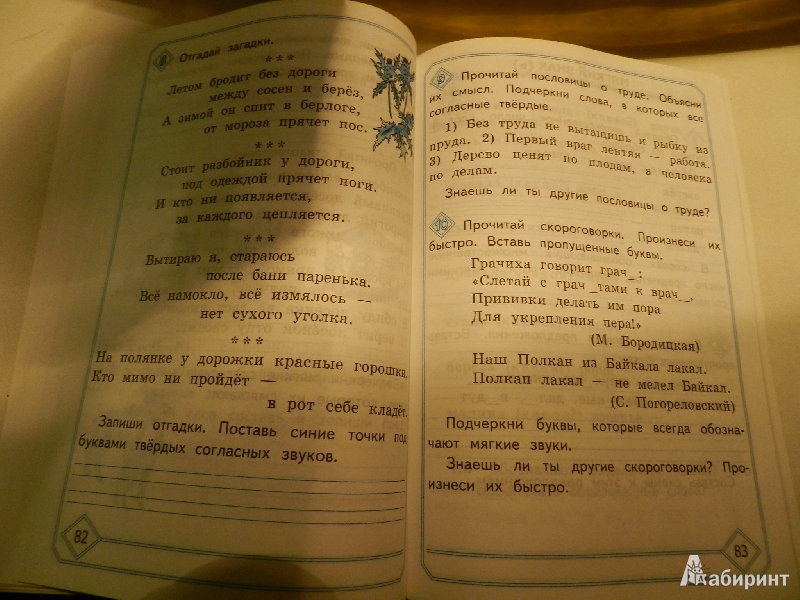 8 Отгадай загадки.
***
Летом бродит без дороги
между сосен и берёз,
А зимой он спит в берлоге,
от мороза прячет нос.
***
Стоит разбойник у дороги,
под одеждой прячет ноги.
И кто ни появляется,
за каждого цепляется.
***
Вытираю я, стараюсь
после бани паренька.
Всё намокло, всё измялось --
нет сухого уголка.
***
На полянке у дорожки красные горошки,
Кто мимо ни пройдёт —
в рот себе кладёт.
Запиши отгадки. Поставь синие точки под
буквами твёрдых согласных звуков.
82
9 Прочитай пословицы о труде. Объясни
их смысл. Подчеркни слова, в которых все
согласные твёрдые.
1) Без труда не вытащишь и рыбку из
пруда. 2) Первый враг лентяя -- работа.
3) Дерево ценят по плодам, а человека
по делам.
Знаешь ли ты другие пословицы о труде?
10 Прочитай скороговорки. Произнеси их
быстро. Вставь пропущенные буквы.
Грачиха говорит грач_:
«Слетай с грач_тами к врач_,
Прививки делать им пора
Для укрепления пера!»
(М. Бородицкая)
Наш Полкан из Байкала лакал.
Полкан лакал — не мелел Байкал.
(С. Погореловский)
Подчеркни буквы, которые всегда обозна-
чают мягкие звуки.
Знаешь ли ты другие скороговорки? Про-
изнеси их быстро.
83
Лабиринт